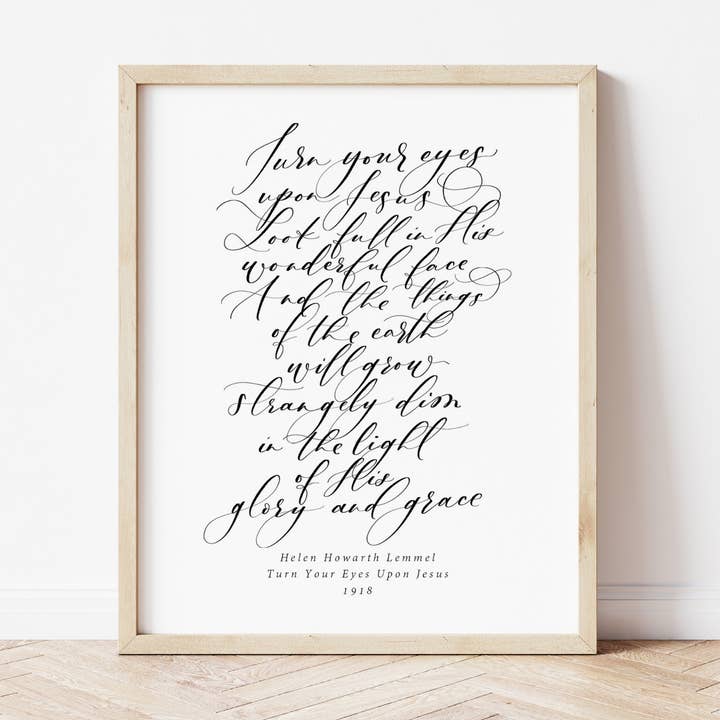 Turn your eyes
upon Jesus
Look full in His
wonderful face
And the things
of the earth
will grow
strangely dim
in the light
of His
glory and grace
Helen Howarth Lemmel
Turn Your Eyes Upon Jesus
1918